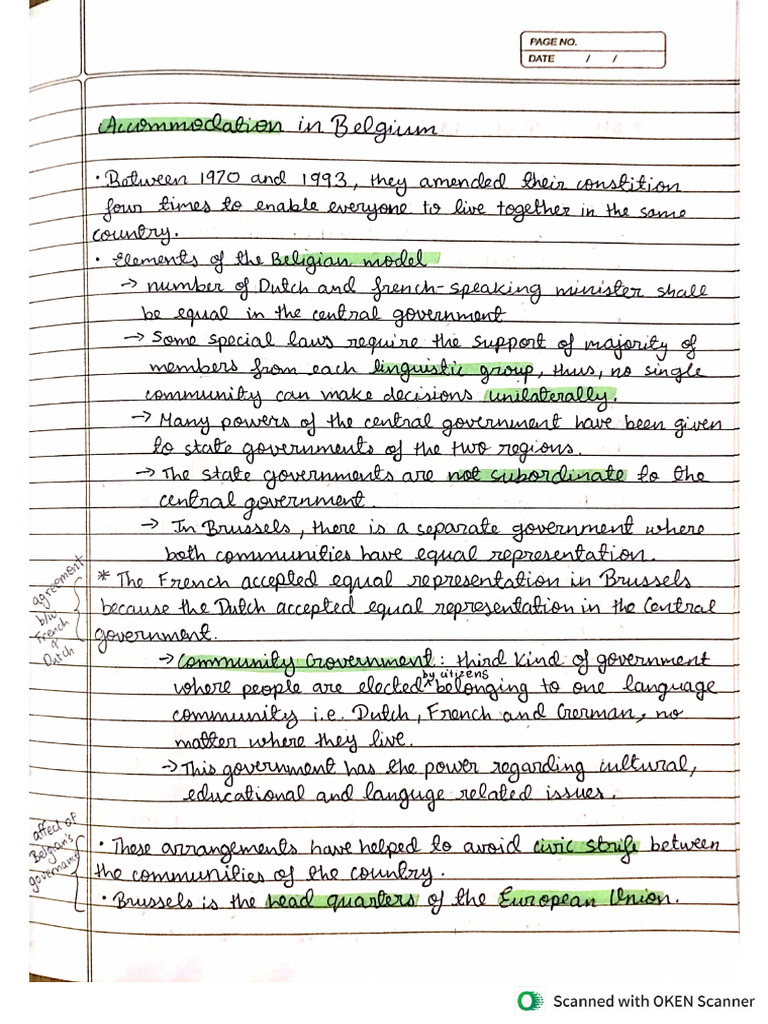 PAGE NO.
DATE / /
Accommodation in Belgium
• Between 1970 and 1993, they amended their constition
four times to enable everyone to live together in the same
country.
• Elements of the Beligian model
→ number of Dutch and french-speaking minister shall
be equal in the central government
→ Some special laws require the support of majority of
members from each linguistic group, thus, no single
community can make decisions unilaterally.
→ Many powers of the central government have been given
to state governments of the two regions.
→ The state governments are not subordinate to the
central government.
→ In Brussels, there is a separate government where
both communities have equal representation.
agreement
b/w
French
&
Dutch
* The French accepted equal representation in Brussels
because the Dutch accepted equal representation in the Central
government.
→ Community Government: third kind of government
by citizens
where people are elected ^ belonging to one language
community i.e. Dutch, French and German, no
matter where they live.
→ This government has the power regarding cultural,
educational and languge related issues.
affect of
Belgan's
• These arrangements have helped to avoid civic strife between
the communities of the country.
• Brussels is the head quarters of the European Union.
Scanned with OKEN Scanner